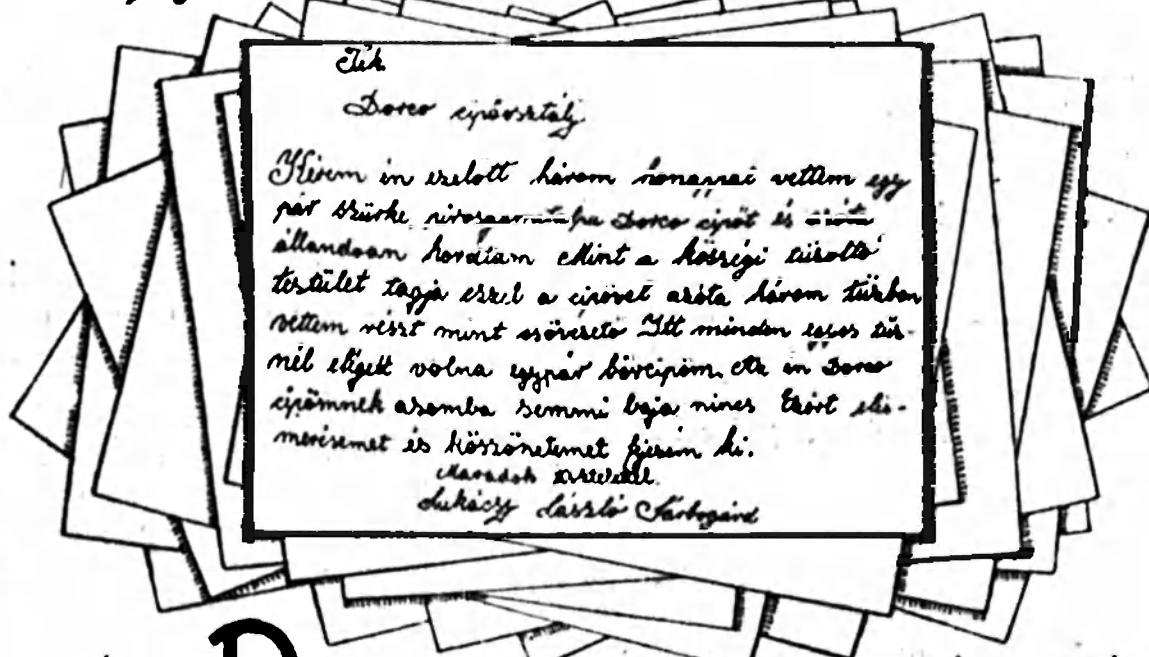 Tek.
Dorco cipőosztály
Kérem én ezelott három honappal vettem egy
pár szürke Dorco cipőt és
állandoan hordtam Mint a községi tűzoltó
testület tagja ezzel a cipővel azóta három tűzben
vettem részt mint csövezető Itt minden egyes tűz-
nél elégett volna egypár bőrcipőm. Az én Dorco
cipőmnek azomba semmi baja nincs Ezért elis-
merésemet és köszönetemet fejezem ki.
Maradok tisztelettel.
Lukácsy László Sárbogárd
D